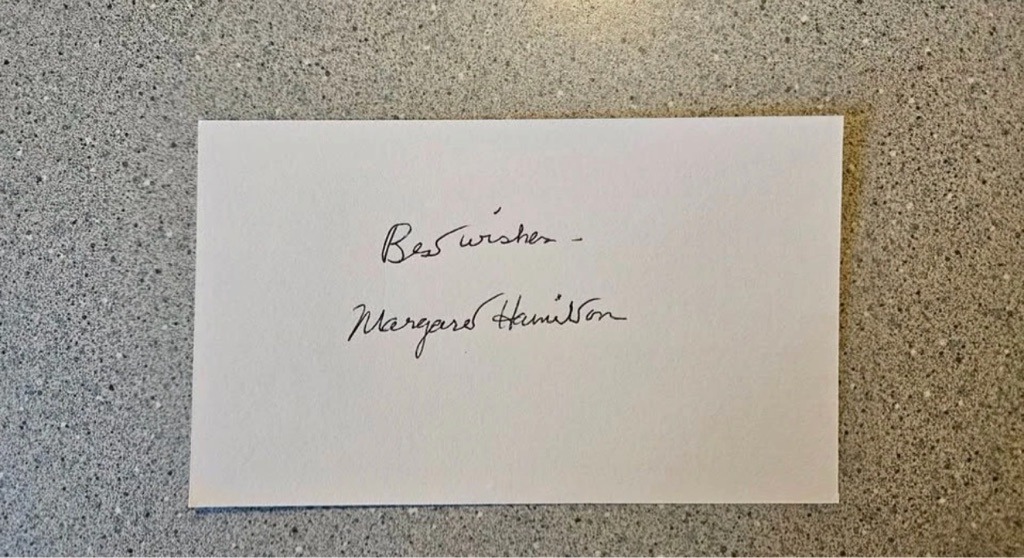 Best wishes -
Margaret Hamilton